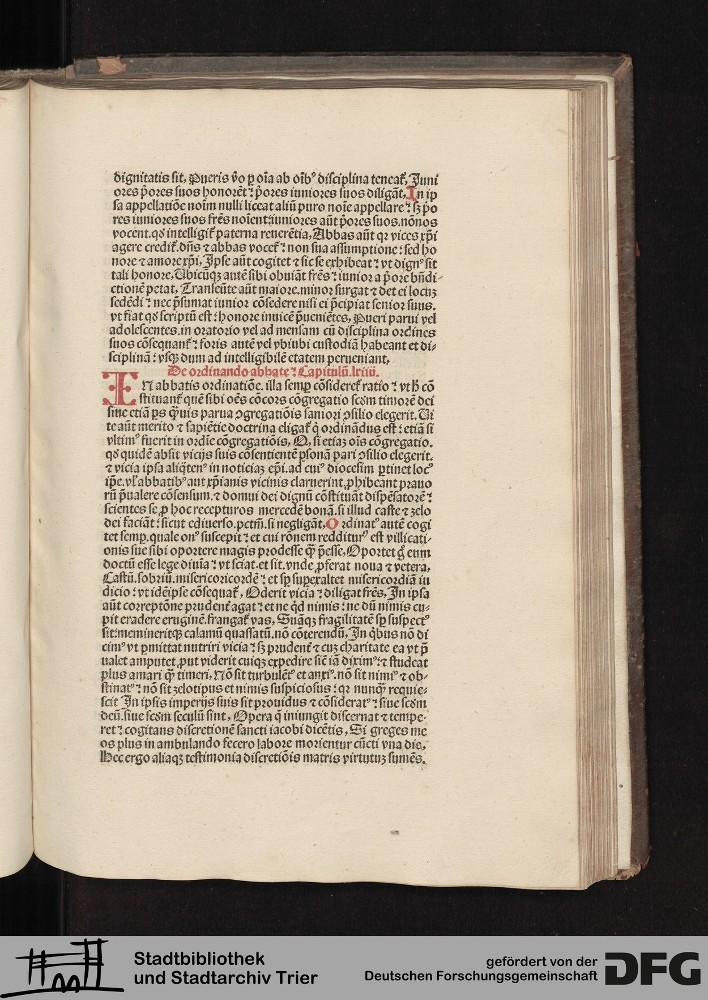 dignitatis sit, Pueris ṽo ꝑ oĩa ab oĩbꝰ disciplina teneat᷒, Iuni
ores p̃ores suos honorẽt: p̃ores iuniores suos diligãt, In ip
sa appellatiõe noĩm nulli liceat aliũ puro noĩe appellare: sꝫ p̃o
res iuniores suos frẽs noĩent: iuniores aũt p̃ores suos. nõnos
vocent. qđ intelligit᷒ paterna reuerẽtia, Abbas aũt qꝛ vices xp̃i
agere credit᷒. dñs ⁊ abbas vocet᷒: non sua assumptione: sed ho
nore ⁊ amore xp̃i, Ipse aũt cogitet ⁊ sic se exhibeat: vt dignꝰ sit
tali honore, Vbicũqꝫ autẽ sibi obuiãt frẽs: iunior a p̃ore bñdi-
ctionẽ petat, Transeũte aũt maiore. minor surgat ⁊ det ei locuꝫ
sedẽdi: nec p̃sumat iunior cõsedere nisi ei p̃cipiat senior suus.
vt fiat qđ scriptũ est: honore inuicẽ p̃ueniẽtes, Pueri parui vel
adolescentes. in oratorio vel ad mensam cũ disciplina ordines
suos cõsequant᷒: foris autẽ vel vbiubi custodiã habeant et di-
sciplinã: vsqꝫ dum ad intelligibilẽ etatem perueniant,
De ordinando abbate: Capitulũ. lxiiii.
IN abbatis ordinatiõe. illa semꝑ cõsideret᷒ ratio: vt h̃ cõ
stituant᷒ quẽ sibi oẽs cõcors cõgregatio scđm timorẽ dei
siue etiã ꝑs q̃uis parua ꝯgregatiõis saniori ꝯsilio elegerit. Vi
te aũt merito ⁊ sapiẽtie doctrina eligat᷒ q̇ ordinãdus est: etiã si
vltimꝰ fuerit in ordĩe cõgregatiõis, Q, si etiaꝫ oĩs cõgregatio.
qđ quidẽ absit vicijs suis cõsentientẽ ꝑsonã pari ꝯsilio elegerit.
⁊ vicia ipsa aliq̃tenꝰ in noticiaꝫ ep̃i. ad cuiꝰ diocesim ꝑtinet locꝰ
ip̃e. vl᷒ abbatibꝰ aut xp̃ianis vicinis claruerint, ꝓhibeant prauo
rũ p̃ualere cõsensum. ⁊ domui dei dignũ cõstituãt dispẽsatorẽ:
scientes se ꝓ hoc recepturos mercedẽ bonã. si illud caste ⁊ zelo
dei faciãt: sicut ediuerso. petm̃. si negligãt, Ordinatꝰ autẽ cogi
tet semꝑ. quale onꝰ suscepit: et cui rõnem redditurꝰ est villicati-
onis sue sibi oportere magis prodesse q̃ p̃esse, Oportet g̊ eum
doctũ esse lege diuĩa: vt sciat. et sit. vnde ꝓferat noua ⁊ vetera,
Castũ. sobriũ. misericordẽ: et sꝑ suꝑexaltet misericordiã iu
dicio: vt idẽ ipse cõsequat᷒, Oderit vicia: diligat frẽs, In ipsa
aũt correptõne prudent᷒ agat: et ne qd nimis: ne dũ nimis cu-
pit eradere eruginẽ. frangat᷒ vas, Suãqꝫ fragilitatẽ sꝑ suspectꝰ
sit: memineritqꝫ calamũ quassatũ. nõ cõterendũ, In q̇bus nõ di
cimꝰ vt ꝑmittat nutriri vicia: sꝫ prudent᷒ ⁊ cuꝫ charitate ea vt p̃
ualet amputet ꝓut viderit cuiqꝫ expedire sic̃ iã diximꝰ: ⁊ studeat
plus amari q̃ timeri, Nõ sit turbulẽtꝰ et anxiꝰ. nõ sit nimiꝰ ⁊ ob-
stinatꝰ: nõ sit zelotipus et nimis suspiciosus: qꝛ nunqꝫ requie-
scit In ipsis imperijs suis sit prouidus ⁊ cõsideratꝰ: siue scđm
deũ. siue scđm seculũ sint, Opera q̃ iniungit discernat ⁊ tempe-
ret: cogitans discretionẽ sancti iacobi dicẽtis, Si greges me
os plus in ambulando fecero labore morientur cũcti vna die,
Hec ergo aliaqꝫ testimonia discretiõis matris virtutuꝫ sumẽs.
Stadtbibliothek
und Stadtarchiv Trier
gefördert von der
Deutschen Forschungsgemeinschaft
DFG